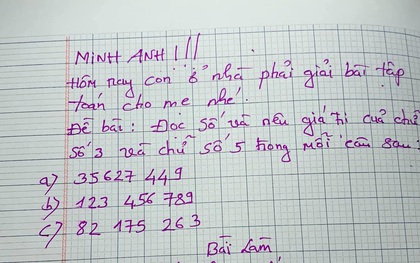 MINH ANH !!!
Hôm nay con ở nhà phải giải bài tập
toán cho mẹ nhé!
Đề bài: Đọc số và nêu giá trị của chữ
số 3 và chữ số 5 trong mỗi câu sau:
a) 35627 449
b) 123 456 789
c) 82 175 263
Bài Làm